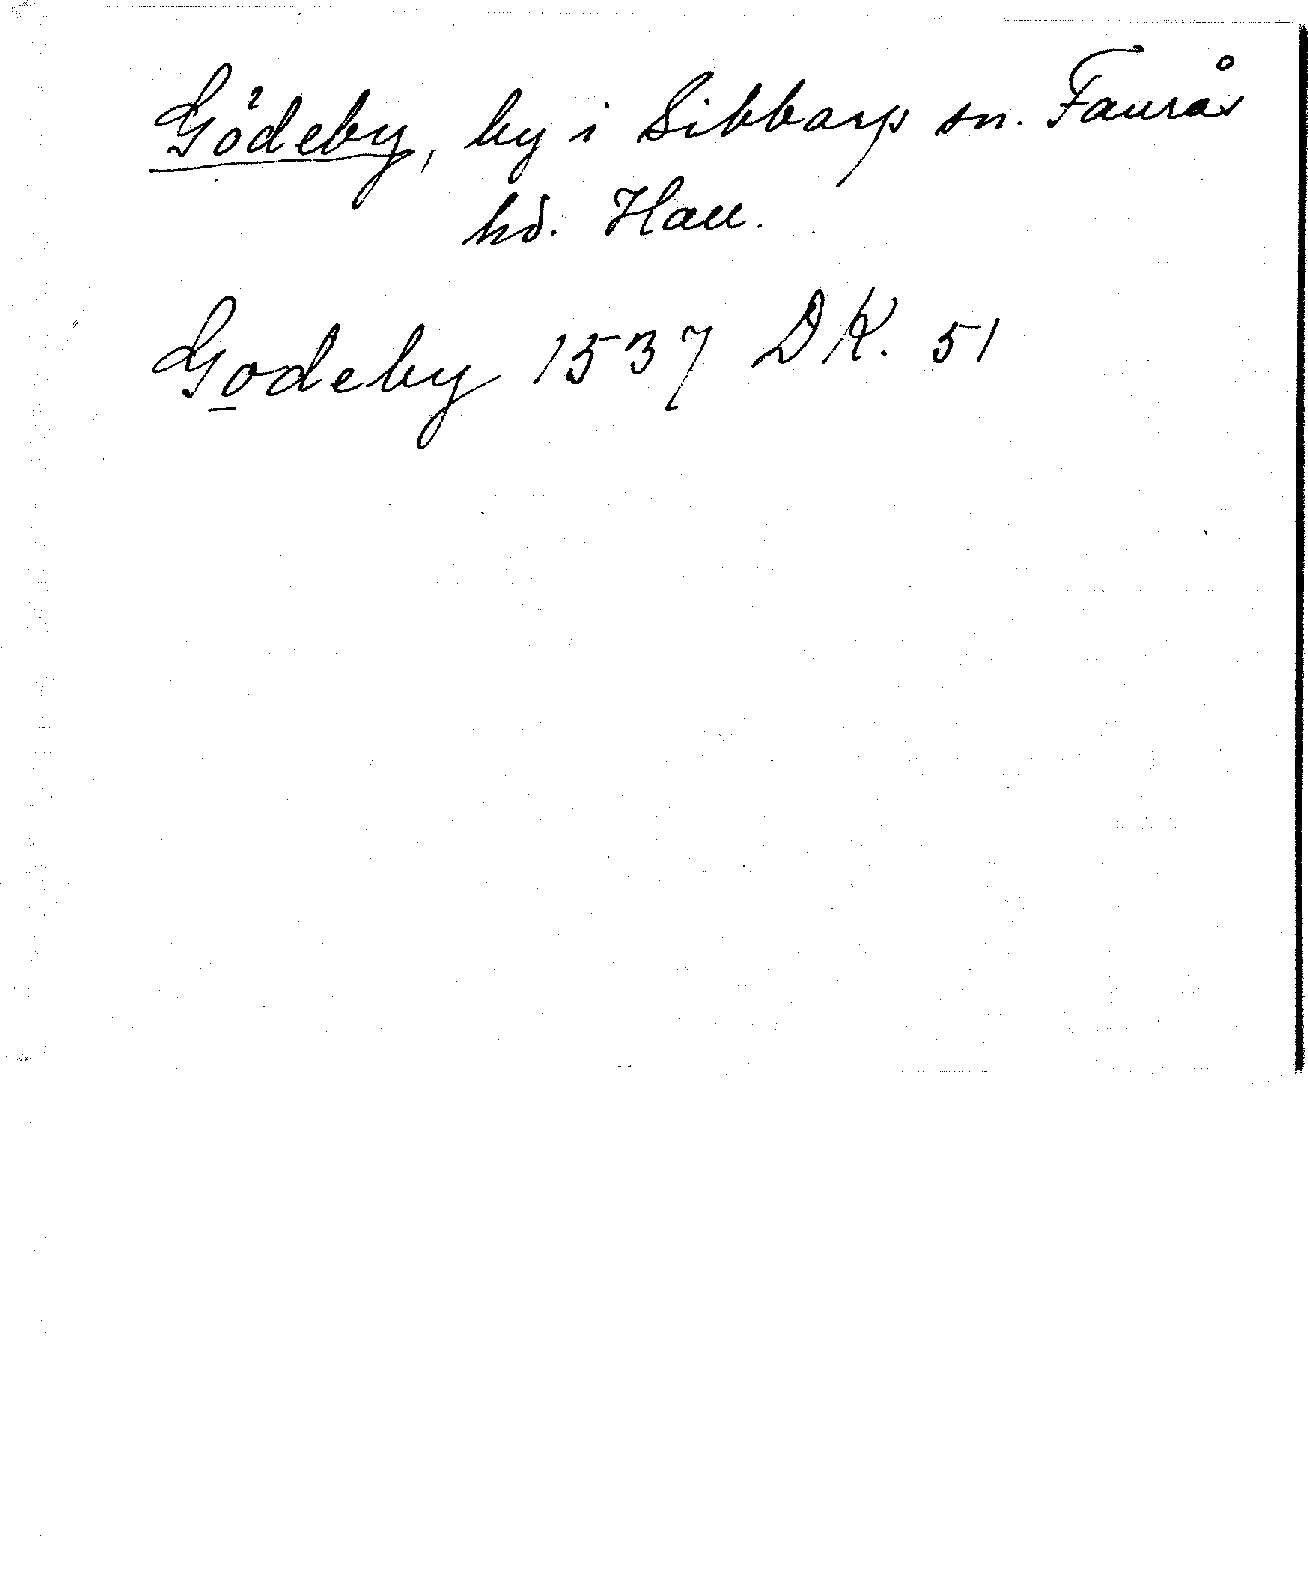 Gödeby, by i Sibbarp sn. Faurås
hd. Hall.
Godeby 1537 DK. 51